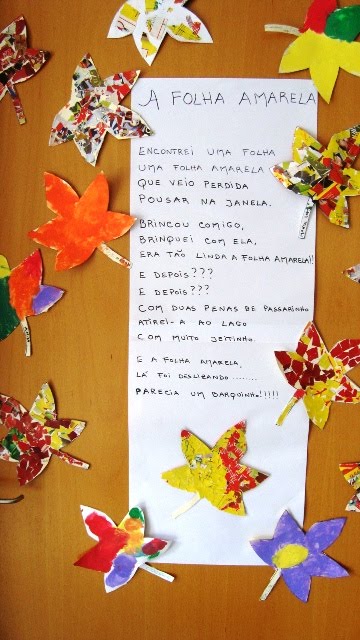 A FOLHA AMARELA
ENCONTREI UMA FOLHA
UMA FOLHA AMARELA
QUE VEIO PERDIDA
POUSAR NA JANELA.
BRINCOU COMIGO,
BRINQUEI COM ELA,
ERA TÃO LINDA A FOLHA AMARELA!!
E DEPOIS???
E DEPOIS???
COM DUAS PENAS DE PASSARINHO
ATIREI-A AO LAGO
COM MUITO JEITINHO.
E A FOLHA AMARELA,
LÁ FOI DESLIZANDO........
PARECIA UM BARQUINHO!!!!!